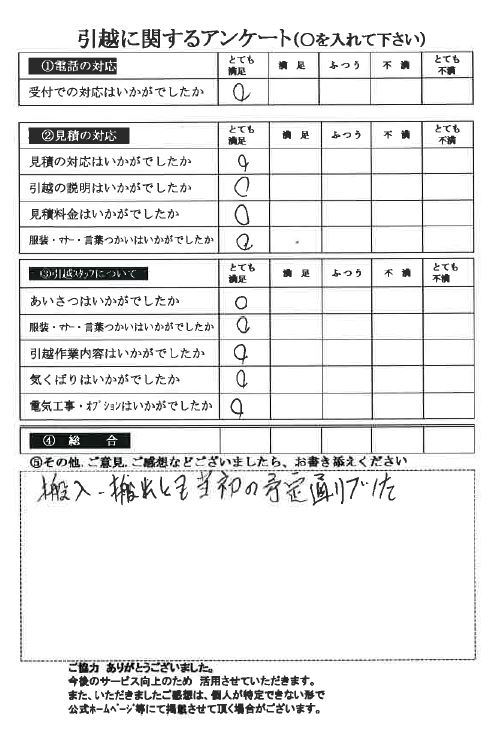 引越に関するアンケート(〇を入れて下さい)
①電話の対応 とても満足 満足 ふつう 不満 とても不満
受付での対応はいかがでしたか ○
②見積の対応 とても満足 満足 ふつう 不満 とても不満
見積の対応はいかがでしたか ○
引越の説明はいかがでしたか ○
見積料金はいかがでしたか ○
服装・マナー・言葉つかいはいかがでしたか ○
③引越スタッフについて とても満足 満足 ふつう 不満 とても不満
あいさつはいかがでしたか ○
服装・マナー・言葉つかいはいかがでしたか ○
引越作業内容はいかがでしたか ○
気くばりはいかがでしたか ○
電気工事・オプションはいかがでしたか ○
④ 総 合
⑤その他、ご意見、ご感想などございましたら、お書き添えください
搬入-搬出とも当初の予定通りでした
ご協力 ありがとうございました。
今後のサービス向上のため 活用させていただきます。
また、いただきましたご感想は、個人が特定できない形で
公式ホームページ等にて掲載させて頂く場合がございます。